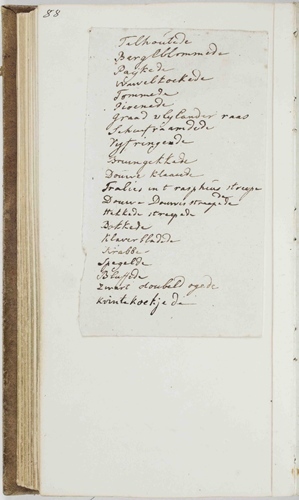 88
Telhoutede
Berg Ublommede
Paykede
Wavelkoekede
Tommede
Pioenede
Graad vlylander raas
Schuifraamdede
Vyfringende
Bruingekkede
Douwe klaaude
Tralies in t rasphuis streepe
Douwe Douwis streepede
Hekkede streepede
Bekkede
Klaverbladede
Krabbe
Spegelde
Bluffede
Zwart doubeld ogede
Kvintekoekjede